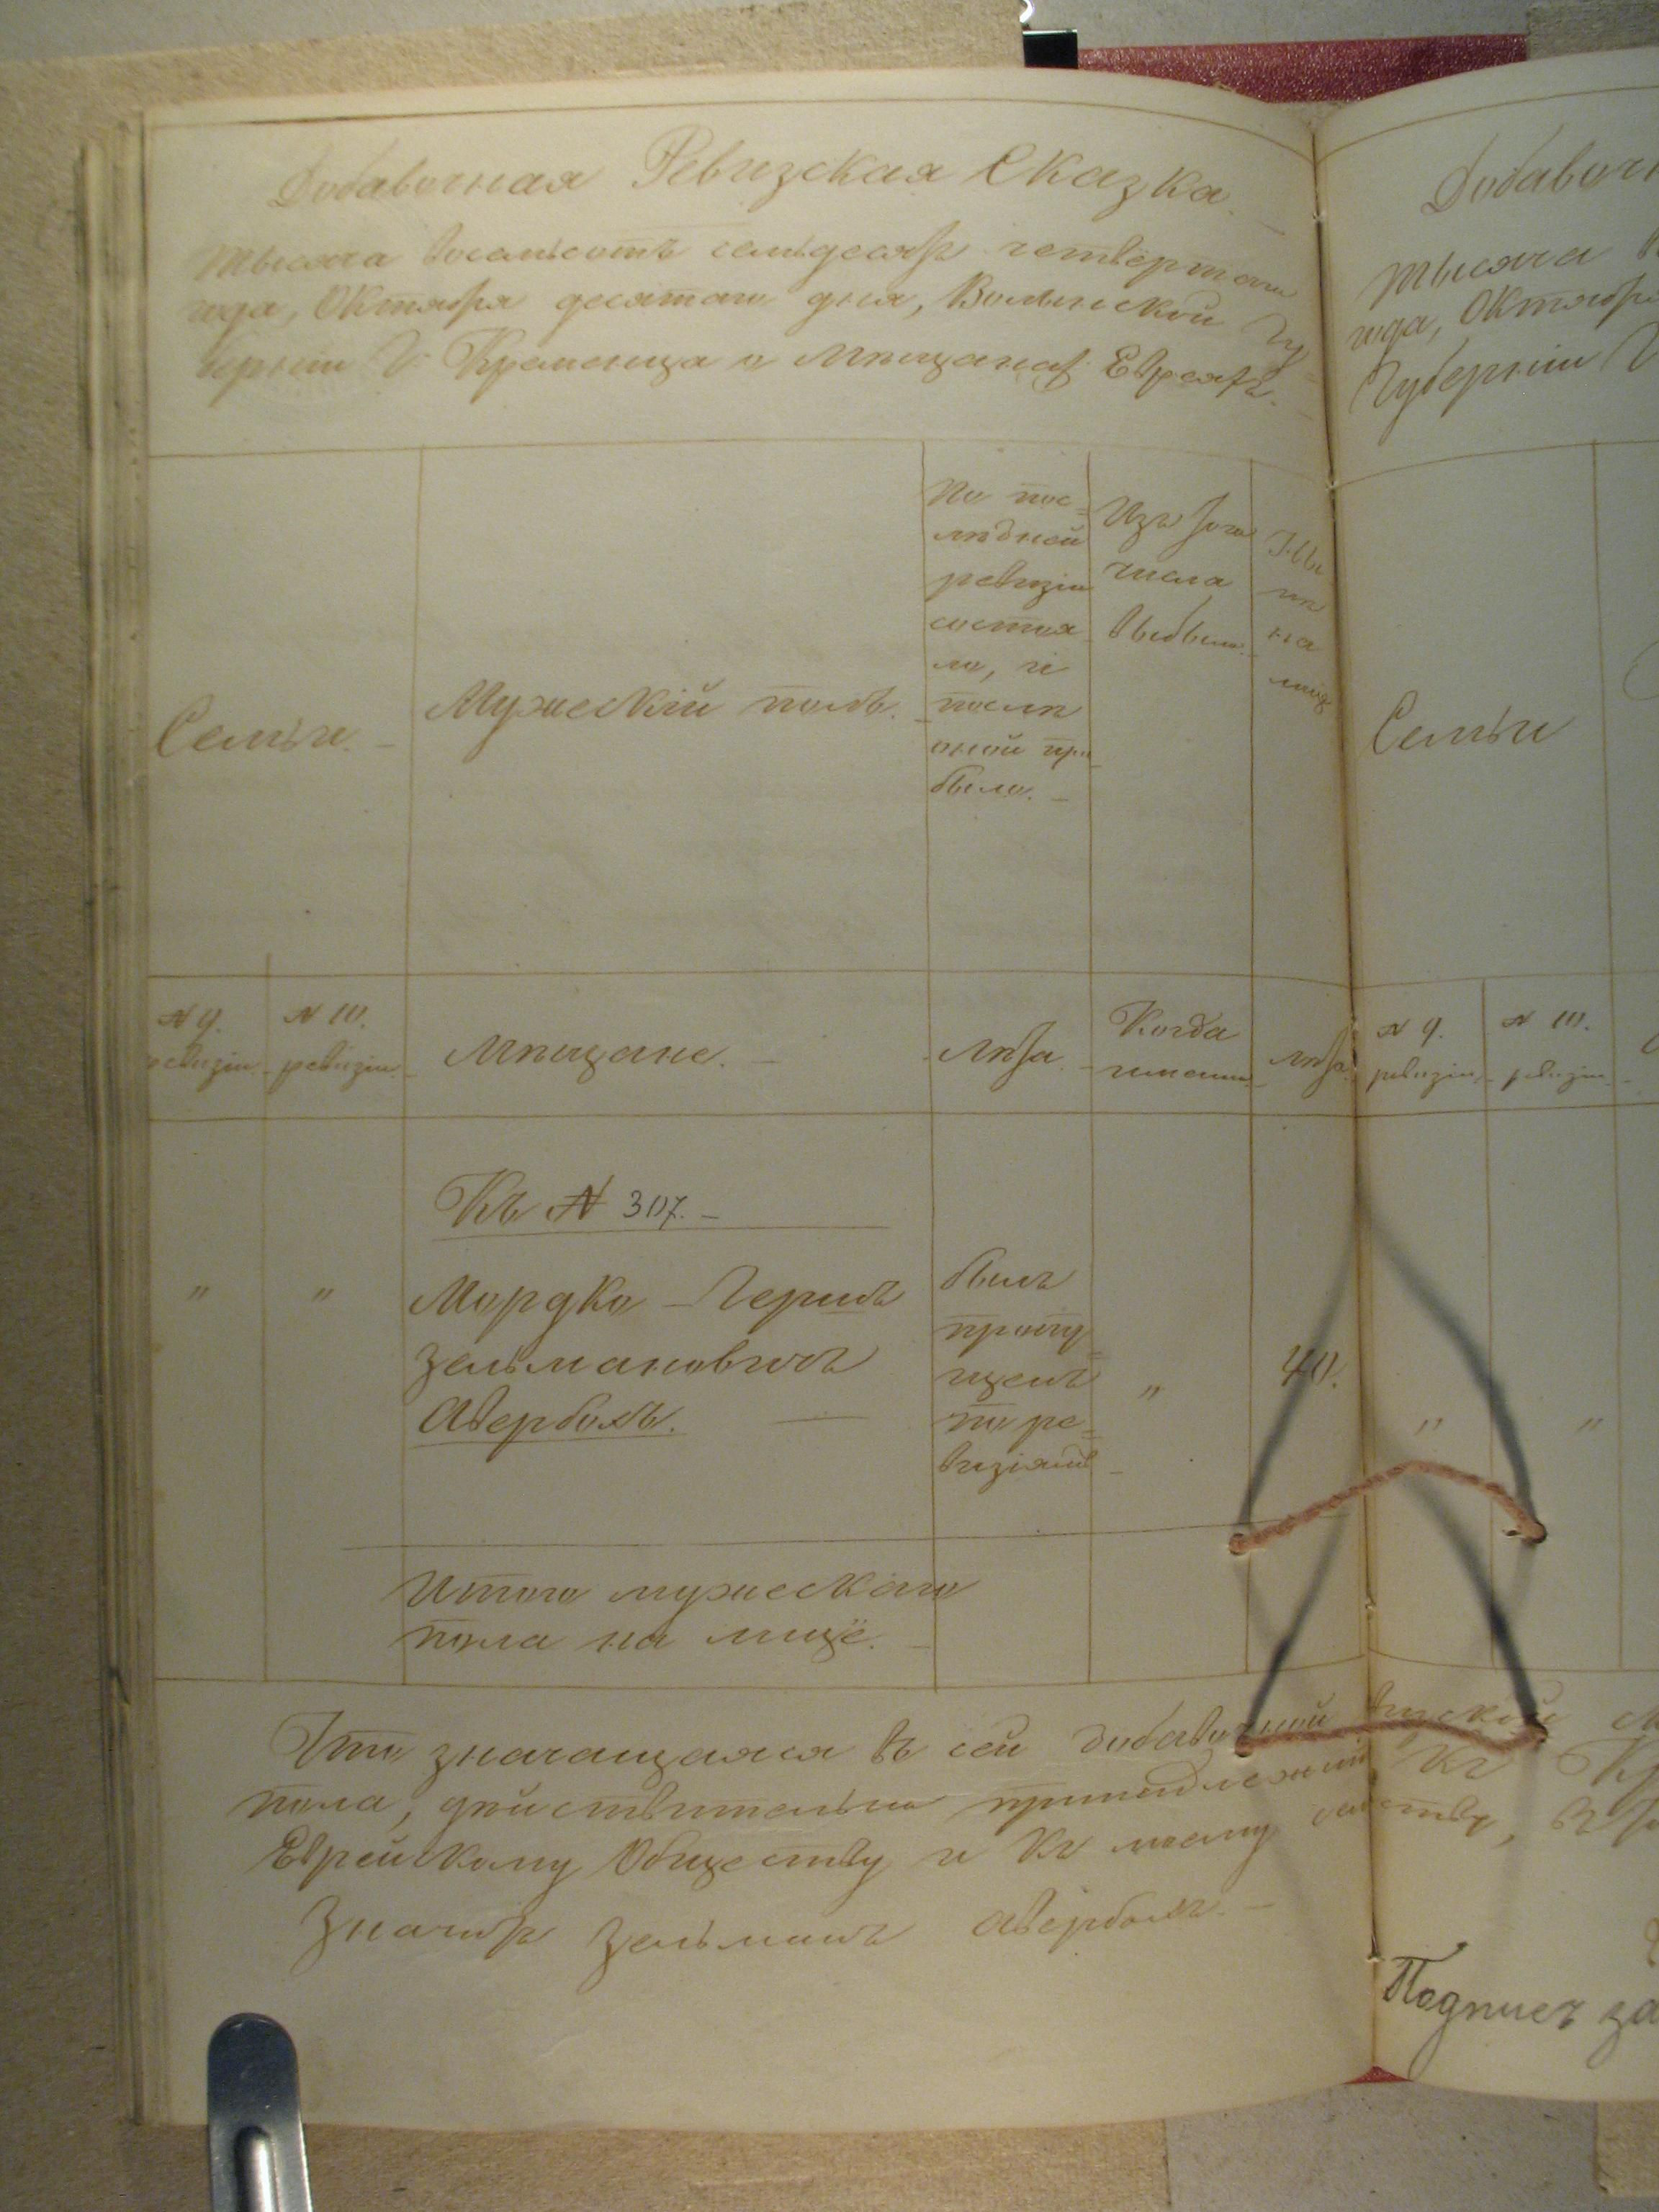 Добавочная Ревизская Сказка.
тысяча восемьсотъ семьдесятъ четвертого
года, Октября десятаго дня, Волынской Гу=
берніи Г. Кременца о Мѣщанахъ Евреяхъ.
Семьи.
Мужескій полъ.
По пос=
лѣдней
ревизіи
состоя
ло, и
послѣ
оной при
было.
Изъ того
числа
выбыло.
Нынѣ
на
лицо
N 9.
ревизіи.
N 10.
ревизіи.
Мѣщане.
Лѣта.
Когда
именно
лѣта.
Къ N 307.
"
"
Мордко-Гершъ
Зельмановичъ
Авербахъ.
былъ
пропу=
щенъ
по ре=
визіямъ
"
40.
Итого мужескаго
пола на лице.
Что значащаяся въ сей добавочной
пола, дѣйствительно принадлежитъ
Еврейскому Обществу и къ моему семейству,
Значитъ Зельманъ Авербахъ.
Добавочн
тысяча в
года, Октября
Губерніи Г
Семьи
N 9.
ревизіи.
N 10.
ревизіи.
"
"
къ Кр
Подписъ за